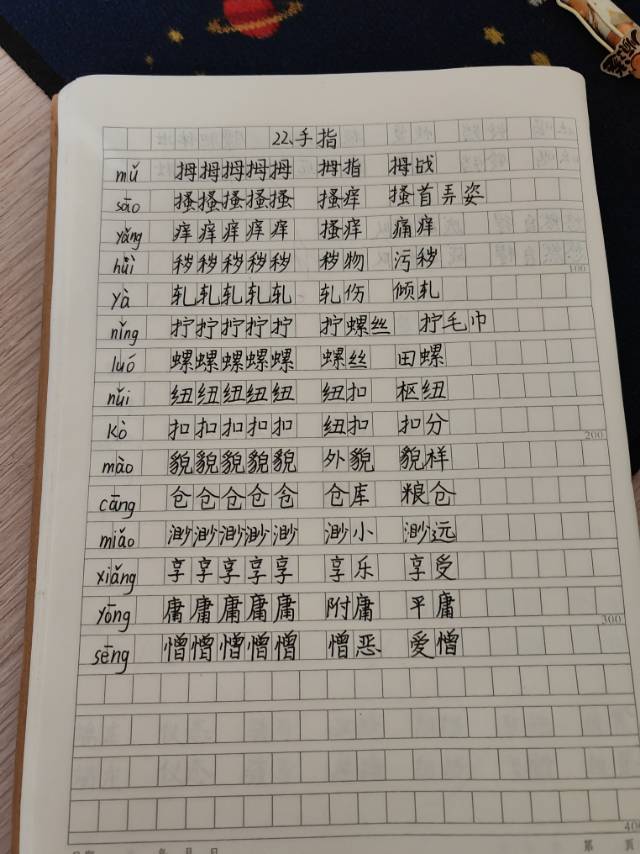 22、手指
mǔ 拇拇拇拇拇 拇指 拇战
sāo 搔搔搔搔搔 搔痒 搔首弄姿
yǎng 痒痒痒痒痒 搔痒 痛痒
huì 秽秽秽秽秽 秽物 污秽
yà 轧轧轧轧轧 轧伤 倾轧
nǐng 拧拧拧拧拧 拧螺丝 拧毛巾
luó 螺螺螺螺螺 螺丝 田螺
nǔi 纽纽纽纽纽 纽扣 枢纽
kò 扣扣扣扣扣 纽扣 扣分
mào 貌貌貌貌貌 外貌 貌样
cāng 仓仓仓仓仓 仓库 粮仓
miǎo 渺渺渺渺渺 渺小 渺远
xiǎng 享享享享享 享乐 享受
yōng 庸庸庸庸庸 附庸 平庸
sēng 憎憎憎憎憎 憎恶 爱憎
100
200
300
400
年 月 日 第 页